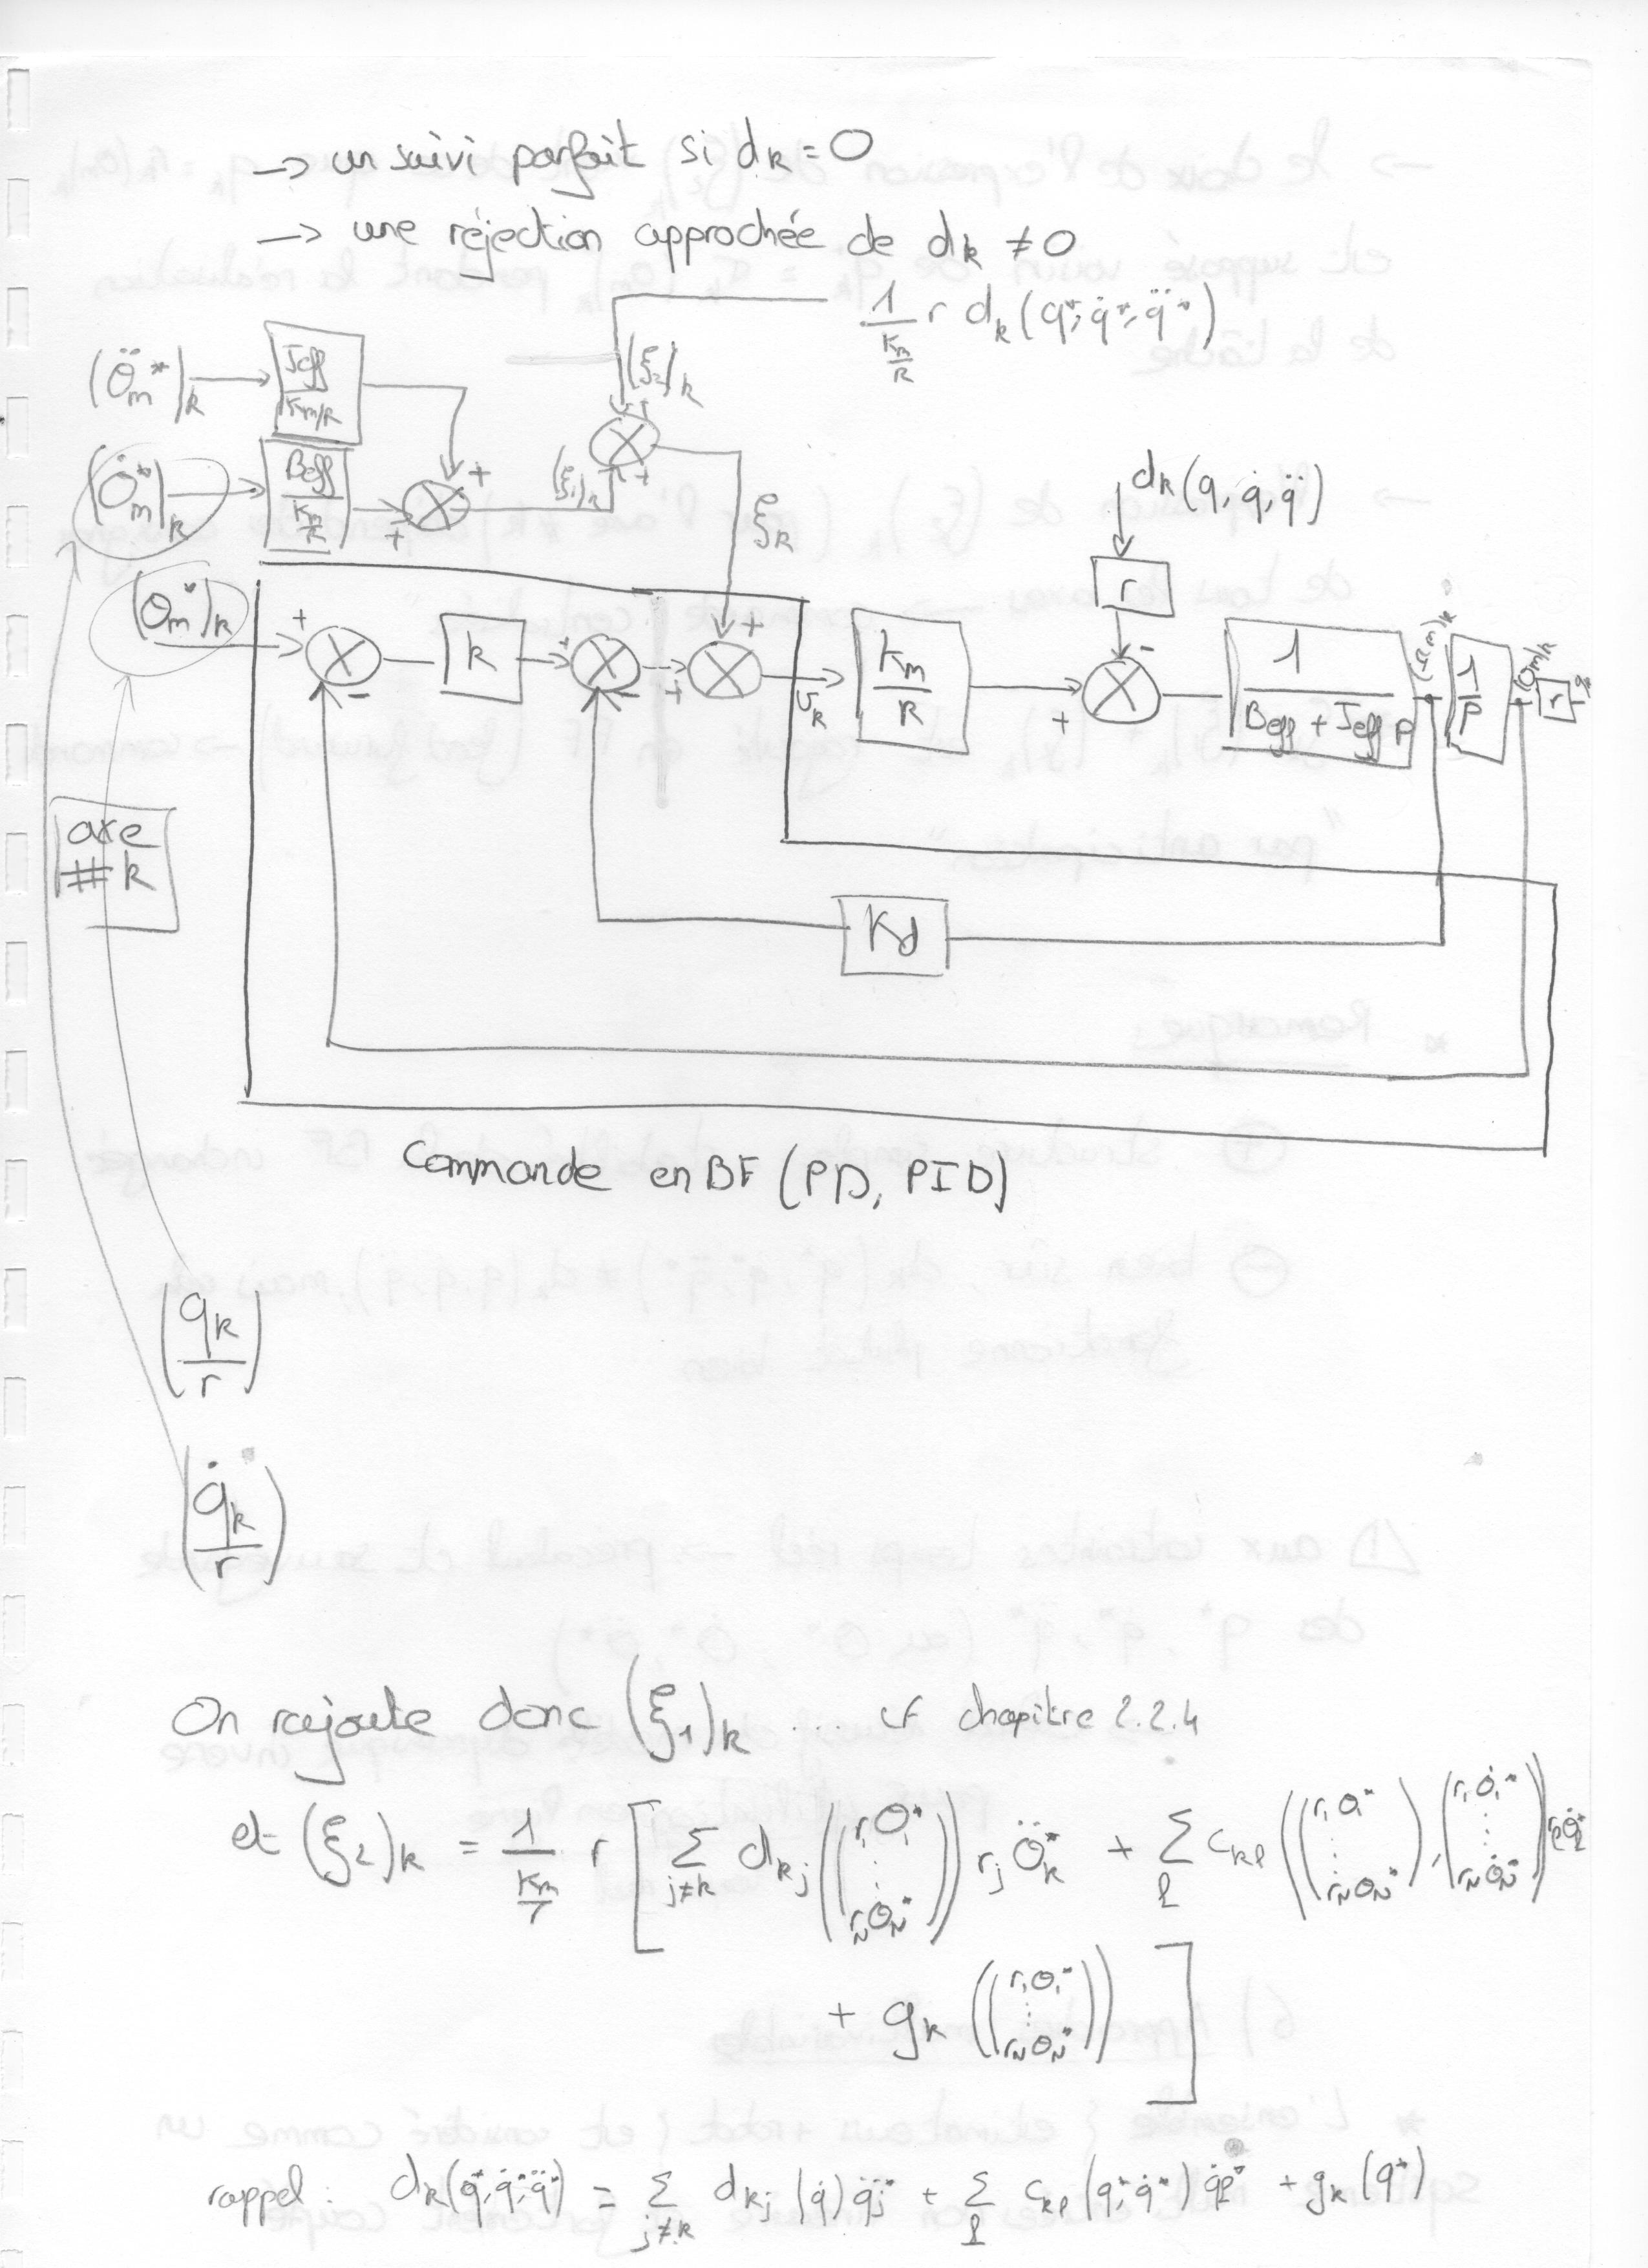 → un suivi parfait si dk = 0
→ une réjection approchée de dk ≠ 0
1/(Km/R) r dk(q*, q̇*, q̈*)
(θ̈m*)k
Jeff/(Km/R)
(ξ2)k
+
+
(θ̇m*)k
Beff/(Km/R)
+
(ξ1)k
+
+
ξk
dk(q, q̇, q̈)
r
(θm*)k
+
-
k
+
-
+
+
vk
Km/R
+
-
1/(Beff + Jeff p)
1/p
(θm)k
r
axe
# k
Kd
Commande en BF (PD, PID)
(qk/r)
(q̇k/r)
On rajoute donc (ξ1)k .... cf chapitre 2.2.4
et (ξ2)k = 1/(Km/r) r [ Σj≠k dkj((r1θ1* ⋮ rNθN*)) rj θ̈k* + Σl ckl((r1θ1* ⋮ rNθN*), (r1θ̇1* ⋮ rNθ̇N*)) rlθ̇l*
+ gk((r1θ1* ⋮ rNθN*)) ]
rappel : dk(q*, q̇*, q̈*) = Σj≠k dkj (q) q̈j* + Σl ckl (q*, q̇*) q̇l* + gk(q*)